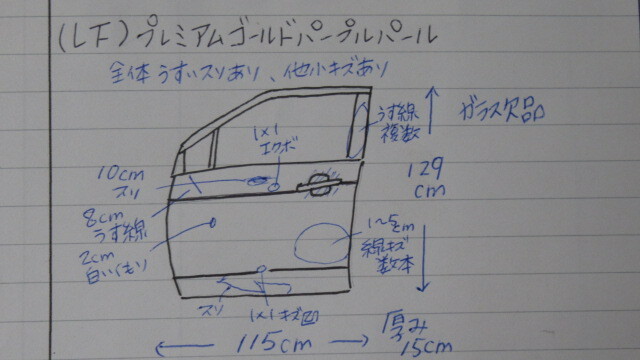 (LF) プレミアムゴールドパープルパール
全体うすいスリあり、他小キズあり
ガラス欠品
うす線
複数
1×1
エクボ
10cm
スリ
129
cm
8cm
うす線
2cm
白いくもり
1~5cm
線キズ
数本
スリ
1×1キズ凹
115cm
厚み
15cm